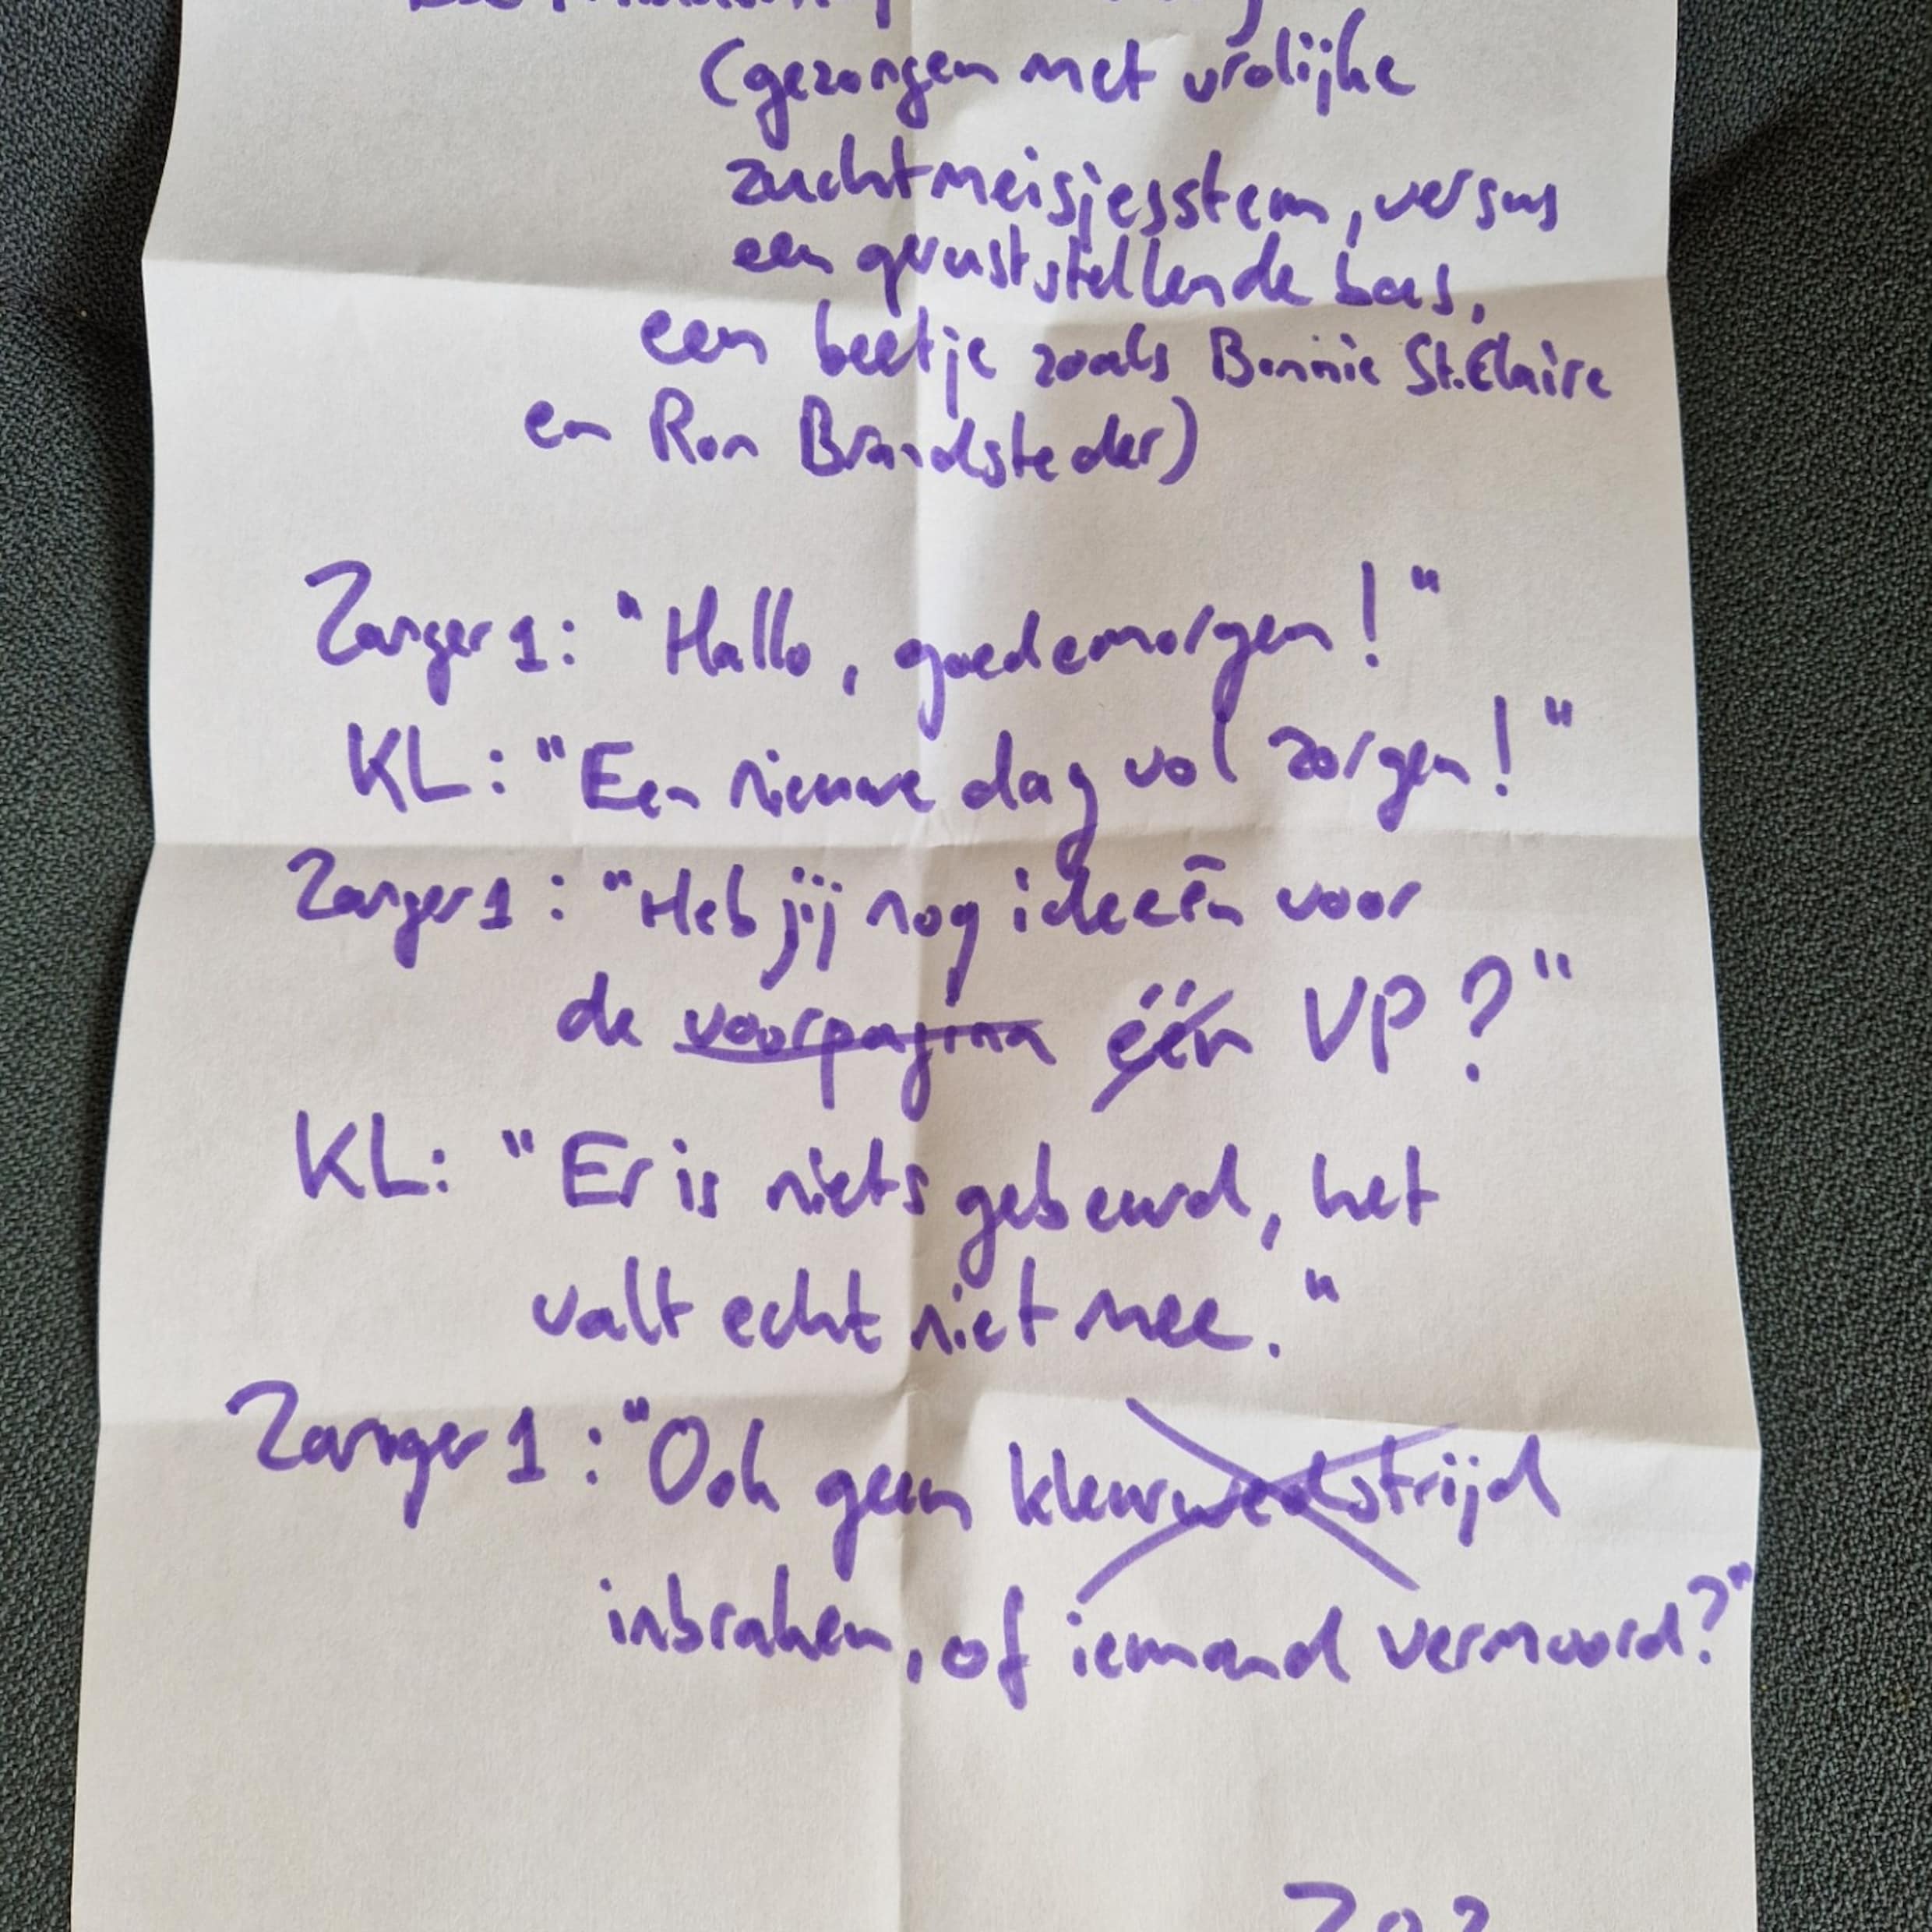 (gezongen met vrolijke
zuchtmeisjesstem, versus
een geruststellende bas,
een beetje zoals Bonnie St.Claire
en Ron Brandsteder)
Zanger 1: "Hallo, goedemorgen!"
KL: "Een nieuwe dag vol zorgen!"
Zanger 1: "Heb jij nog ideeën voor
de voorpagina één VP?"
KL: "Er is niets gebeurd, het
valt echt niet mee."
Zanger 1: "Ook geen kleurwedstrijd
inbraken, of iemand vermoord?"